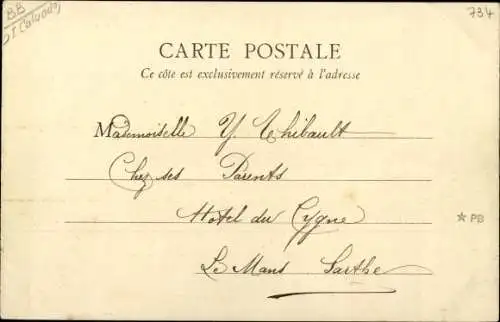 BB
DI Calvados
734
CARTE POSTALE
Ce côté est exclusivement réservé à l'adresse
Mademoiselle Y. Thibault
Chez ses Parents
Hotel du Cygne
* PB
Le Mans Sarthe